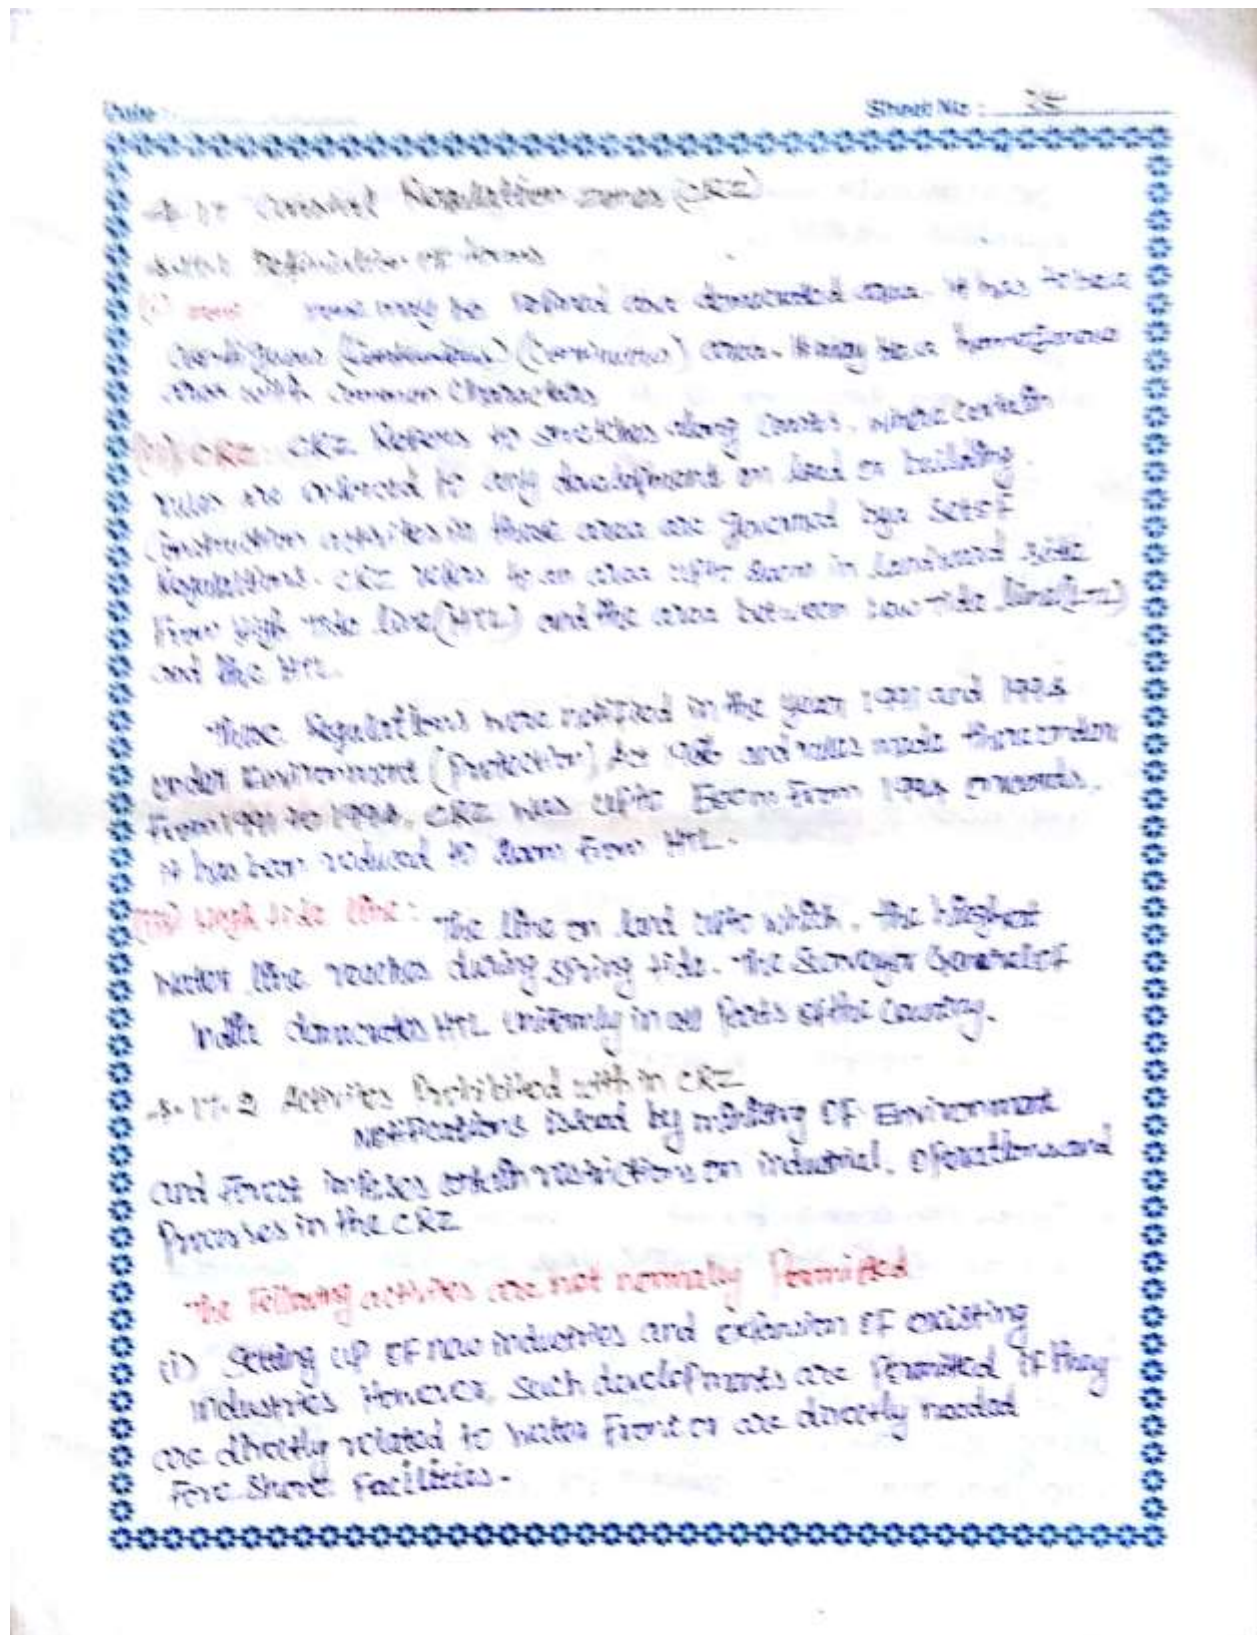 Date :
Sheet No : 35
Coastal Regulation zones (CRZ)
Definition of terms
(i) zone: zone may be defined are demarcated area. It has to be a
Contiguous (Continuous) area. It may be a homogenous
area with common Characters
(ii) CRZ: CRZ Refers to stretches along Coasts, where certain
rules are enforced to any development on land or building
Construction activities in these area are governed by a set of
Regulations. CRZ refers to an area upto in landward side
From High Tide Line (HTL) and the area between Low Tide Line (LTL)
and the HTL.
These Regulations were notified in the year 1991 and
under Environment (Protection) Act 1986 and rules made thereunder
From 1991 to CRZ was upto From onwards,
it has been reduced to From HTL.
(iii) High tide line: The line on land upto which, the highest
water line reaches during spring tide. The Surveyor General of
India demarcates HTL uniformly in all parts of the Country.
2 Activites Prohibited with in CRZ
Notifications issued by ministry OF Environment
and Forest imposes certain restrictions on industrial, operations and
Processes in the CRZ
The Following activites are not normally Permitted
(i) Setting up of new industries and expansion OF existing
industries However, such developments are Permitted if they
are directly related to water Front or are directly needed
Fore Shore Facilities.